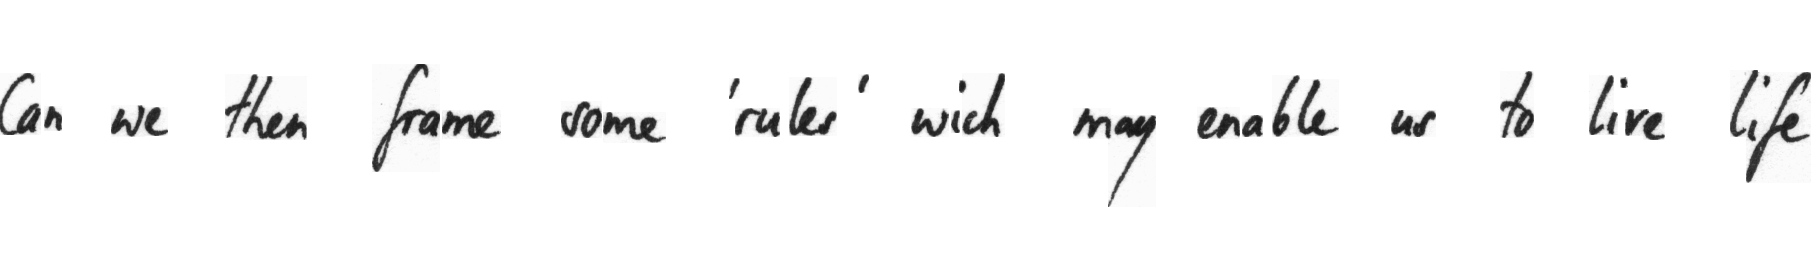 Can we then frame some 'rules' wich may enable us to live life